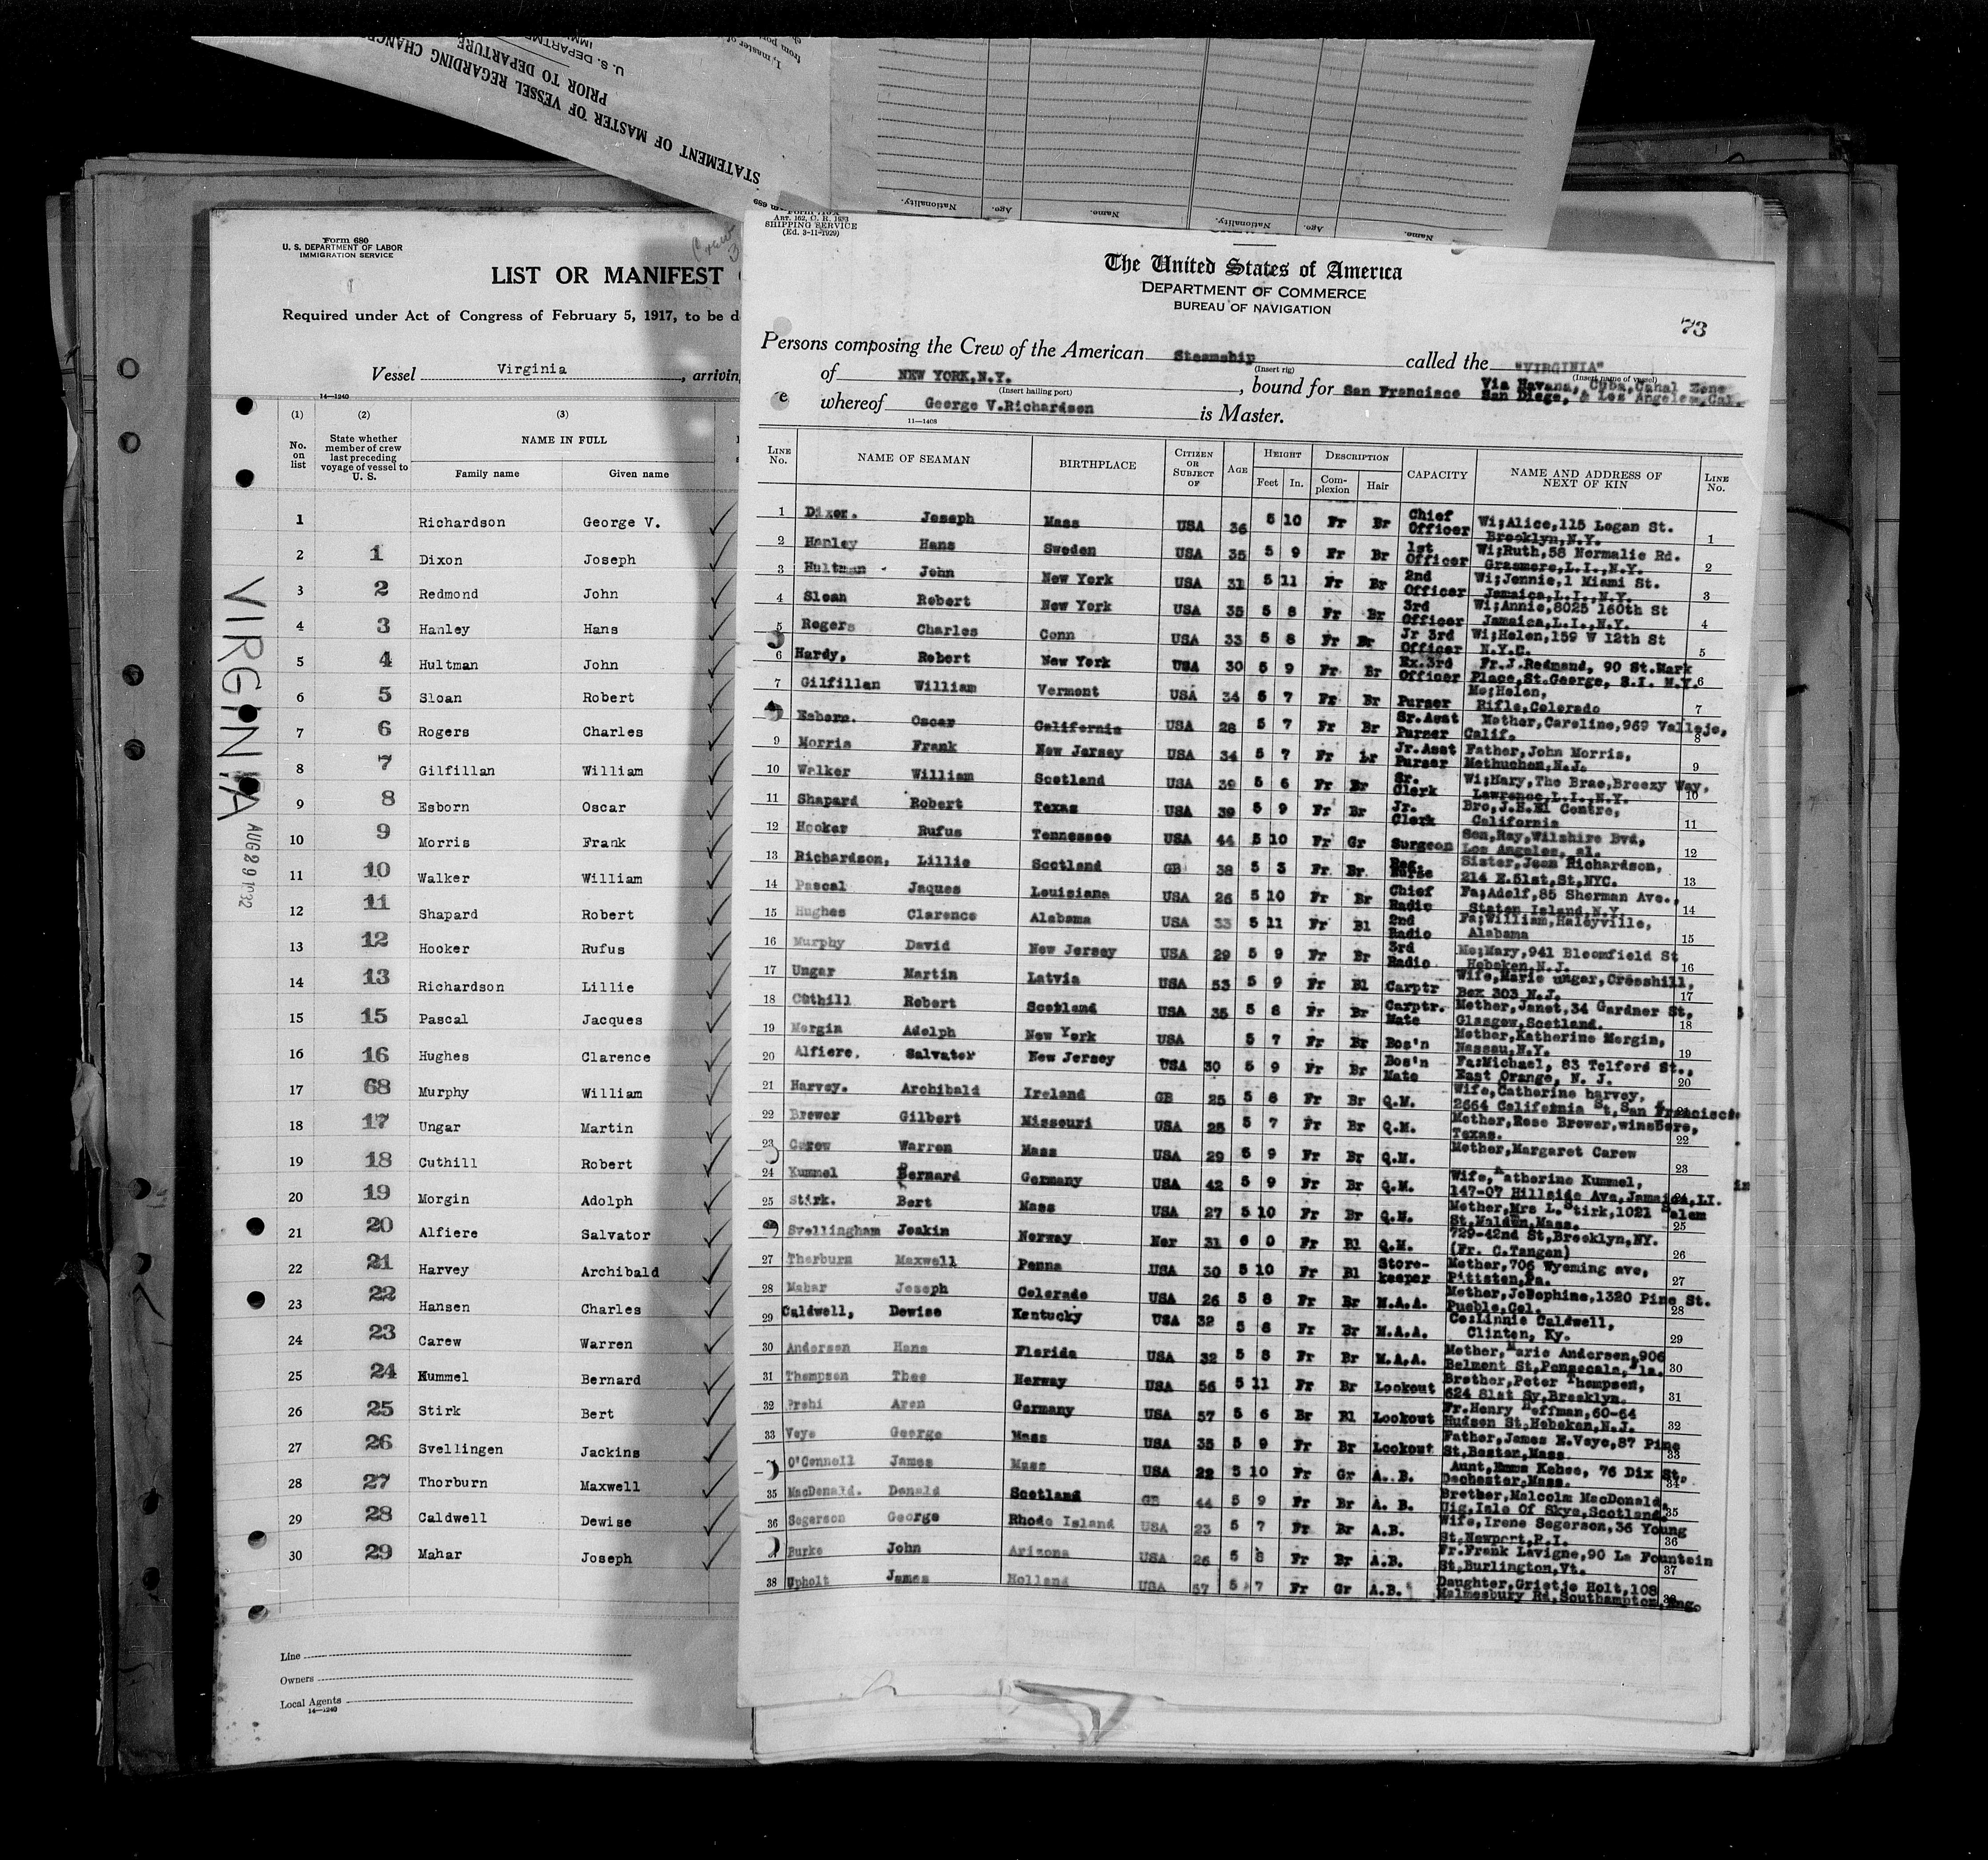 STATEMENT OF MASTER OF VESSEL REGARDING CHANGES
PRIOR TO DEPARTURE
U. S. DEPARTMENT
I, master of
from port
Nationality. Ago. Name. Nationality. Ago. Name.
Form 680
U. S. DEPARTMENT OF LABOR
IMMIGRATION SERVICE
LIST OR MANIFEST
Required under Act of Congress of February 5, 1917, to be d
Vessel Virginia, arriving
14—1240
(1) (2) (3)
No. on list
State whether member of crew last preceding voyage of vessel to U. S.
NAME IN FULL
Family name Given name
1 Richardson George V.
2 1 Dixon Joseph
3 2 Redmond John
4 3 Hanley Hans
5 4 Hultman John
6 5 Sloan Robert
7 6 Rogers Charles
8 7 Gilfillan William
9 8 Esborn Oscar
10 9 Morris Frank
11 10 Walker William
12 11 Shapard Robert
13 12 Hooker Rufus
14 13 Richardson Lillie
15 15 Pascal Jacques
16 16 Hughes Clarence
17 68 Murphy William
18 17 Ungar Martin
19 18 Cuthill Robert
20 19 Morgin Adolph
21 20 Alfiere Salvator
22 21 Harvey Archibald
23 22 Hansen Charles
24 23 Carew Warren
25 24 Kummel Bernard
26 25 Stirk Bert
27 26 Svellingen Jackins
28 27 Thorburn Maxwell
29 28 Caldwell Dewise
30 29 Mahar Joseph
Line
Owners
Local Agents
14—1240
VIRGINIA
AUG 29 1932
ART. 162, C. R. 1683
SHIPPING SERVICE
(Ed. 3-11-1929)
The United States of America
DEPARTMENT OF COMMERCE
BUREAU OF NAVIGATION
73
Persons composing the Crew of the American Steamship called the "VIRGINIA"
(Insert rig) (Insert name of vessel)
of NEW YORK,N.Y., bound for San Francisco Via Havana, Cuba,Canal Zone
San Diego, & Los Angeles,Cal.
(Insert hailing port)
whereof George V.Richardson is Master.
11—1408
LINE No. NAME OF SEAMAN BIRTHPLACE CITIZEN OR SUBJECT OF AGE HEIGHT Feet In. DESCRIPTION Complexion Hair CAPACITY NAME AND ADDRESS OF NEXT OF KIN LINE No.
1 Dixon. Joseph Mass USA 36 5 10 Fr Br Chief Officer Wi;Alice,115 Logan St. Brooklyn,N.Y. 1
2 Hanley Hans Sweden USA 35 5 9 Fr Br 1st Officer Wi;Ruth,58 Normalie Rd. Grasmere,L.I.,N.Y. 2
3 Hultman John New York USA 31 5 11 Fr Br 2nd Officer Wi;Jennie,1 Miami St. Jamaica,L.I.,N.Y. 3
4 Sloan Robert New York USA 35 5 8 Fr Br 3rd Officer Wi;Annie,8025 160th St Jamaica,L.I.,N.Y. 4
5 Rogers Charles Conn USA 33 5 8 Fr Br Jr 3rd Officer Wi;Helen,159 W 12th St N.Y.C. 5
6 Hardy, Robert New York USA 30 5 9 Fr Br Ex.3rd Officer Fr.J.Redmand, 90 St.Mark Place,St.George, S.I. N.Y. 6
7 Gilfillan William Vermont USA 34 5 7 Fr Br Purser Mo;Helen, Rifle,Colorado 7
Esborn. Oscar California USA 28 5 7 Fr Br Sr.Asst Purser Mother,Caroline,969 Vallejo, Calif. 8
9 Morris Frank New Jersey USA 34 5 7 Fr Br Jr.Asst Purser Father,John Morris, Methuchen,N.J. 9
10 Walker William Scotland USA 39 5 6 Fr Br Sr. Clerk Wi;Mary,The Brae,Breezy Way, Lawrence,L.I.,N.Y. 10
11 Shapard Robert Texas USA 39 5 9 Fr Br Jr. Clerk Bro,J.H.El Centro, California 11
12 Hooker Rufus Tennessee USA 44 5 10 Fr Gr Surgeon Son,Ray,Wilshire Bvd, Los Angeles, al. 12
13 Richardson, Lillie Scotland GB 38 5 3 Fr Br Reg. Nurse Sister,Jean Richardson, 214 E.51st,St,NYC. 13
14 Pascal Jaques Louisiana USA 26 5 10 Fr Br Chief Radio Fa;Adolf,85 Sherman Ave., Staten Island,N.Y. 14
15 Hughes Clarence Alabama USA 33 5 11 Fr Bl 2nd Radio Fa;William,Haleyville, Alabama 15
16 Murphy David New Jersey USA 29 5 9 Fr Br 3rd Radio Mo;Mary,941 Bloomfield St Hoboken,N.J. 16
17 Ungar Martin Latvia USA 53 5 9 Fr Bl Carptr Wife,Marie ungar,Cresshill, Box 303 N.J. 17
18 Cuthill Robert Scotland USA 35 5 8 Fr Br Carptr. Mate Mother,Janet,34 Gardner St, Glasgow,Scotland. 18
19 Morgin Adolph New York USA 5 7 Fr Br Bos'n Mother,Katherine Morgin, Nassau,N.Y. 19
20 Alfiere. Salvator New Jersey USA 30 5 9 Fr Br Bos'n Mate Fa:Michael, 83 Telford St., East Orange, N. J. 20
21 Harvey. Archibald Ireland GB 25 5 8 Fr Br Q.M. Wife,Catherine harvey, 2664 California St,San Francisco 21
22 Brewer Gilbert Missouri USA 25 5 7 Fr Br Q.M. Mother,Rose Brewer,winsboro, Texas. 22
23 Carew Warren Mass USA 29 5 9 Fr Br Q.M. Mother,Margaret Carew 23
24 Kummel Bernard Germany USA 42 5 9 Fr Br Q.M. Wife,Katherine Kummel, 147-07 Hillside Ave,Jamaica,LI. 24
25 Stirk. Bert Mass USA 27 5 10 Fr Br Q.M. Mother,Mrs L.Stirk,1021 Salem St,Malden,Mass. 25
Svellingham Joakin Norway Nor 31 6 0 Fr Bl Q.M. 729-42nd St,Brooklyn,NY. (Fr. C.Tangen) 26
27 Thorburn Maxwell Penna USA 30 5 10 Fr Bl Store-keeper Mother,706 Wyoming ave, Pittston,Pa. 27
28 Mahar Joseph Colorado USA 26 5 8 Fr Br M.A.A. Mother,Josephine,1320 Pine St. Pueblo,Col. 28
29 Caldwell, Dewise Kentucky USA 32 5 8 Fr Br M.A.A. Co:Linnie Caldwell, Clinton, Ky. 29
30 Anderson Hans Florida USA 32 5 8 Fr Br M.A.A. Mother,Marie Anderson,906 Belmont St,Pensecala,Fla. 30
31 Thompson Thee Norway USA 56 5 11 Fr Br Lookout Brother,Peter Thompson, 624 81st Sy,Brooklyn. 31
32 Prehi Aron Germany USA 57 5 6 Br Bl Lookout Fr.Henry Hoffman,60-64 Hudson St,Hoboken,N.J. 32
33 Voye George Mass USA 35 5 9 Fr Br Lookout Father,James E.Voye,87 Pine St,Boston,Mass. 33
O'Connell James Mass USA 22 5 10 Fr Gr A.B. Aunt,Emma Kehoe, 76 Dix St, Dochester,Mass. 34
35 MacDonald. Donald Scotland GB 44 5 9 Fr Br A. B. Brother,Malcolm MacDonald, Uig,Isle Of Skye,Scotland. 35
36 Segerson George Rhode Island USA 23 5 7 Fr Br A.B. Wife,Irene Segerson,36 Young St,Newport,R.I. 36
Burke John Arizona USA 26 5 8 Fr Br A.B. Fr.Frank Lavigne,90 La Fountain St,Burlington,Vt. 37
38 Upholt James Holland USA 57 5 7 Fr Gr A.B. Daughter,Grietje Holt,108 Malmesbury Rd,Southampton,Eng. 38